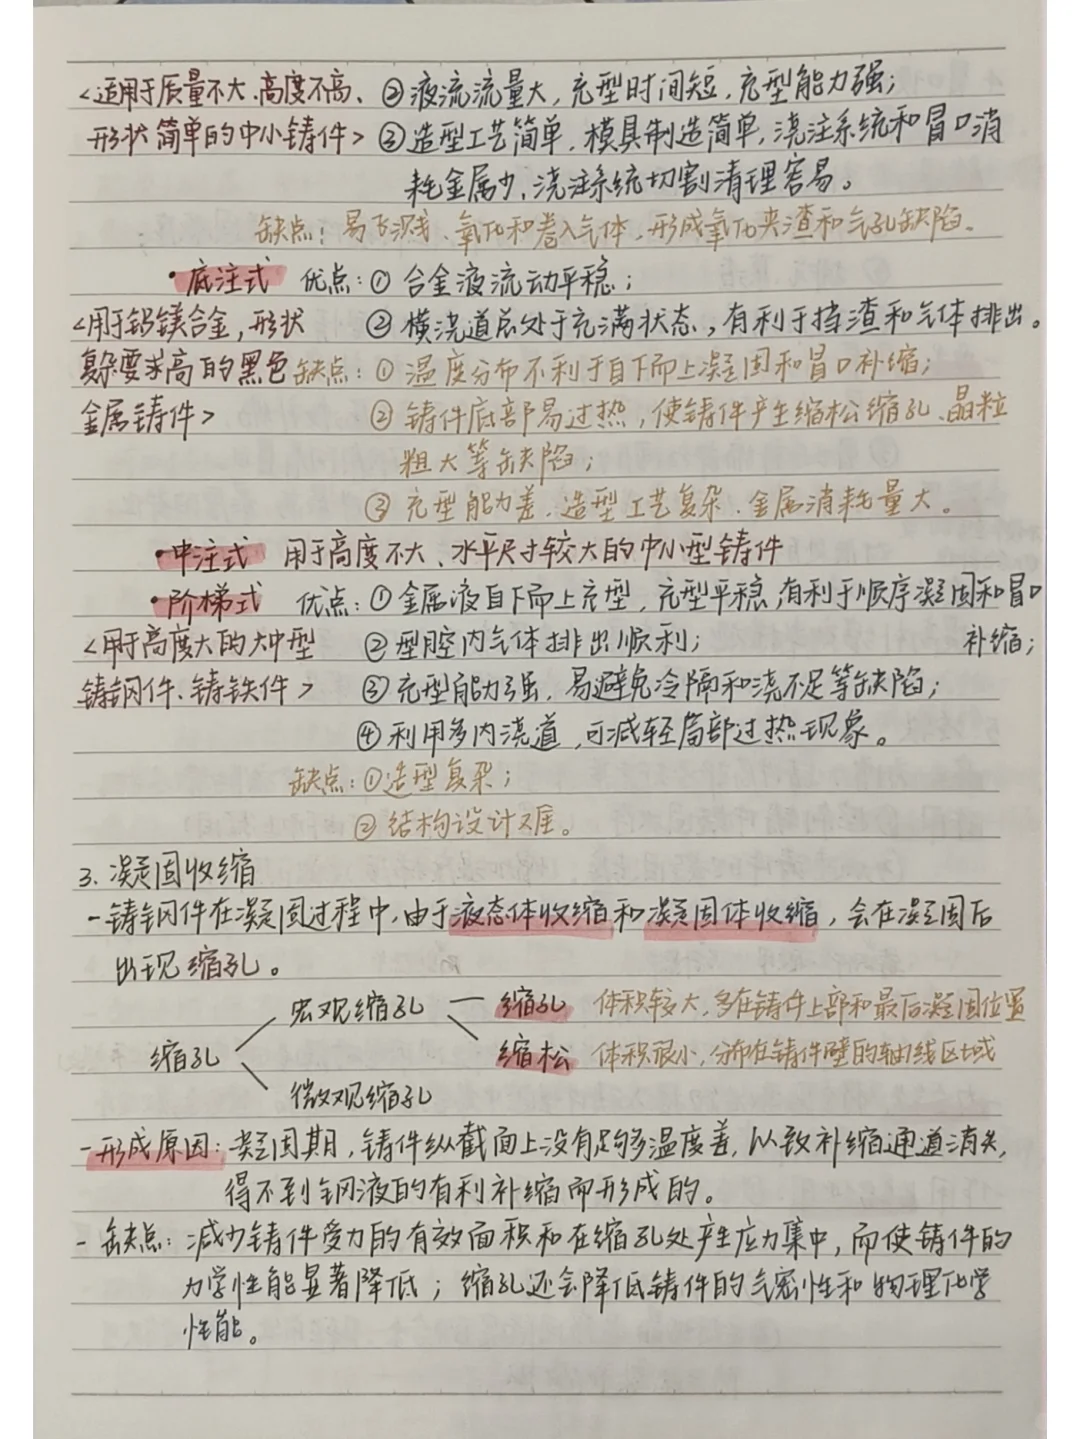 <适用于质量不大、高度不高、 ②液流流量大，充型时间短，充型能力强；
形状简单的中小铸件> ③造型工艺简单，模具制造简单，浇注系统和冒口消
耗金属少，浇注系统切割清理容易。
缺点：易飞溅、氧化和卷入气体，形成氧化夹渣和气孔缺陷。
·底注式 优点：①合金液流动平稳；
<用于铝镁合金，形状 ②横浇道总处于充满状态，有利于挡渣和气体排出。
复杂要求高的黑色 缺点：①温度分布不利于自下而上凝固和冒口补缩；
金属铸件> ②铸件底部易过热，使铸件产生缩松缩孔、晶粒
粗大等缺陷；
③充型能力差、造型工艺复杂、金属消耗量大。
·中注式 用于高度不大、水平尺寸较大的中小型铸件
·阶梯式 优点：①金属液自下而上充型，充型平稳，有利于顺序凝固和冒口
<用于高度大的大中型 ②型腔内气体排出顺利； 补缩；
铸钢件、铸铁件> ③充型能力强，易避免冷隔和浇不足等缺陷；
④利用多内浇道，可减轻局部过热现象。
缺点：①造型复杂；
②结构设计难。
3. 凝固收缩
-铸钢件在凝固过程中，由于液态体收缩和凝固体收缩，会在凝固后
出现缩孔。
宏观缩孔 — 缩孔 体积较大，多在铸件上部和最后凝固位置
缩孔 缩松 体积很小，分布在铸件壁的轴线区域
微观缩孔
-形成原因：凝固期，铸件纵截面上没有足够温度差，以致补缩通道消失，
得不到钢液的有利补缩而形成的。
-缺点：减少铸件受力的有效面积和在缩孔处产生应力集中，而使铸件的
力学性能显著降低；缩孔还会降低铸件的气密性和物理化学
性能。